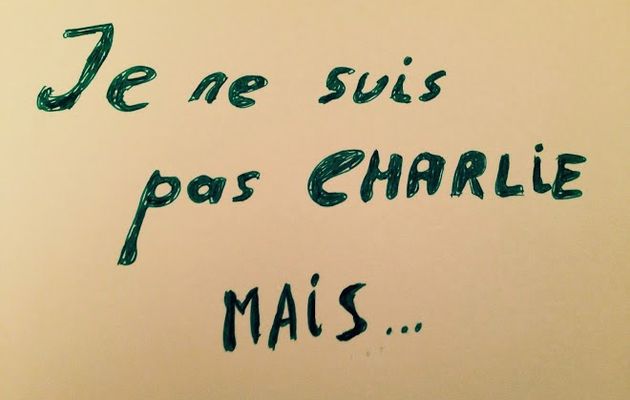 Je ne suis
pas CHARLiE
MAiS...